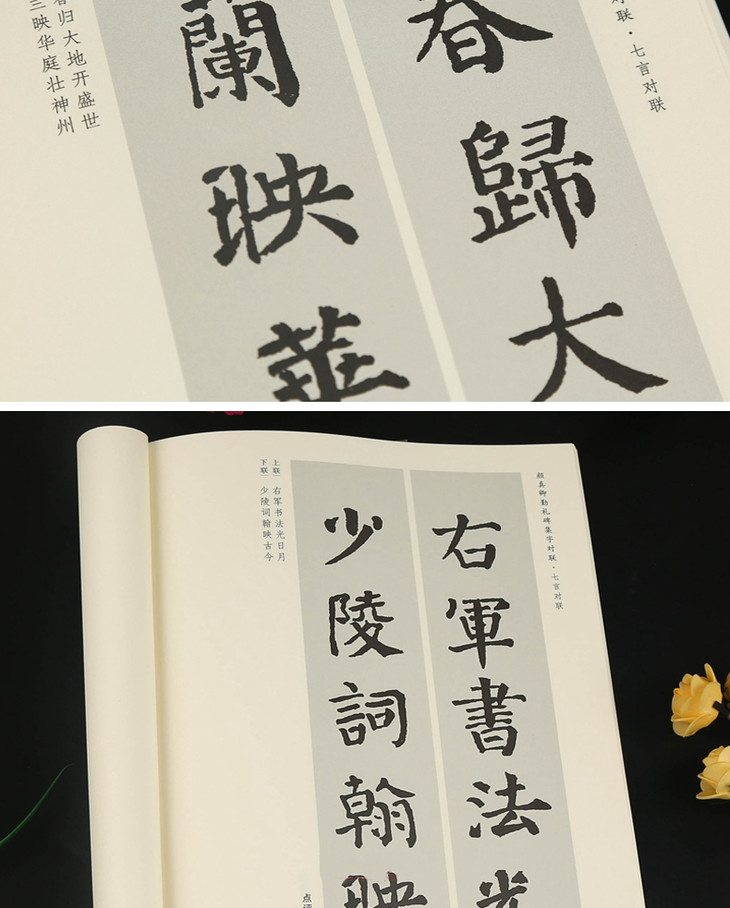 联·七言对联
春歸大
蘭映華
春归大地开盛世
映华庭壮神州
颜真卿勤礼碑集字对联·七言对联
右軍書法光
少陵詞翰映
上联 右军书法光日月
下联 少陵词翰映古今
点